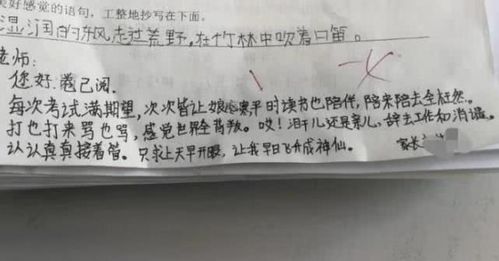 美好感觉的语句,工整地抄写在下面。
湿润的东风,走过荒野,在竹林中吹着口笛。
老师:
您好:卷已阅.
每次考试满期望,次次皆让娘心寒平时读书也陪伴,陪来陪去全枉然。
打也打来骂也骂,感觉世界全背叛。哎!泪干儿还是亲儿,辞去工作勿消遣。
认认真真接着管。只求上天早开眼,让我早日飞升成神仙。
家长